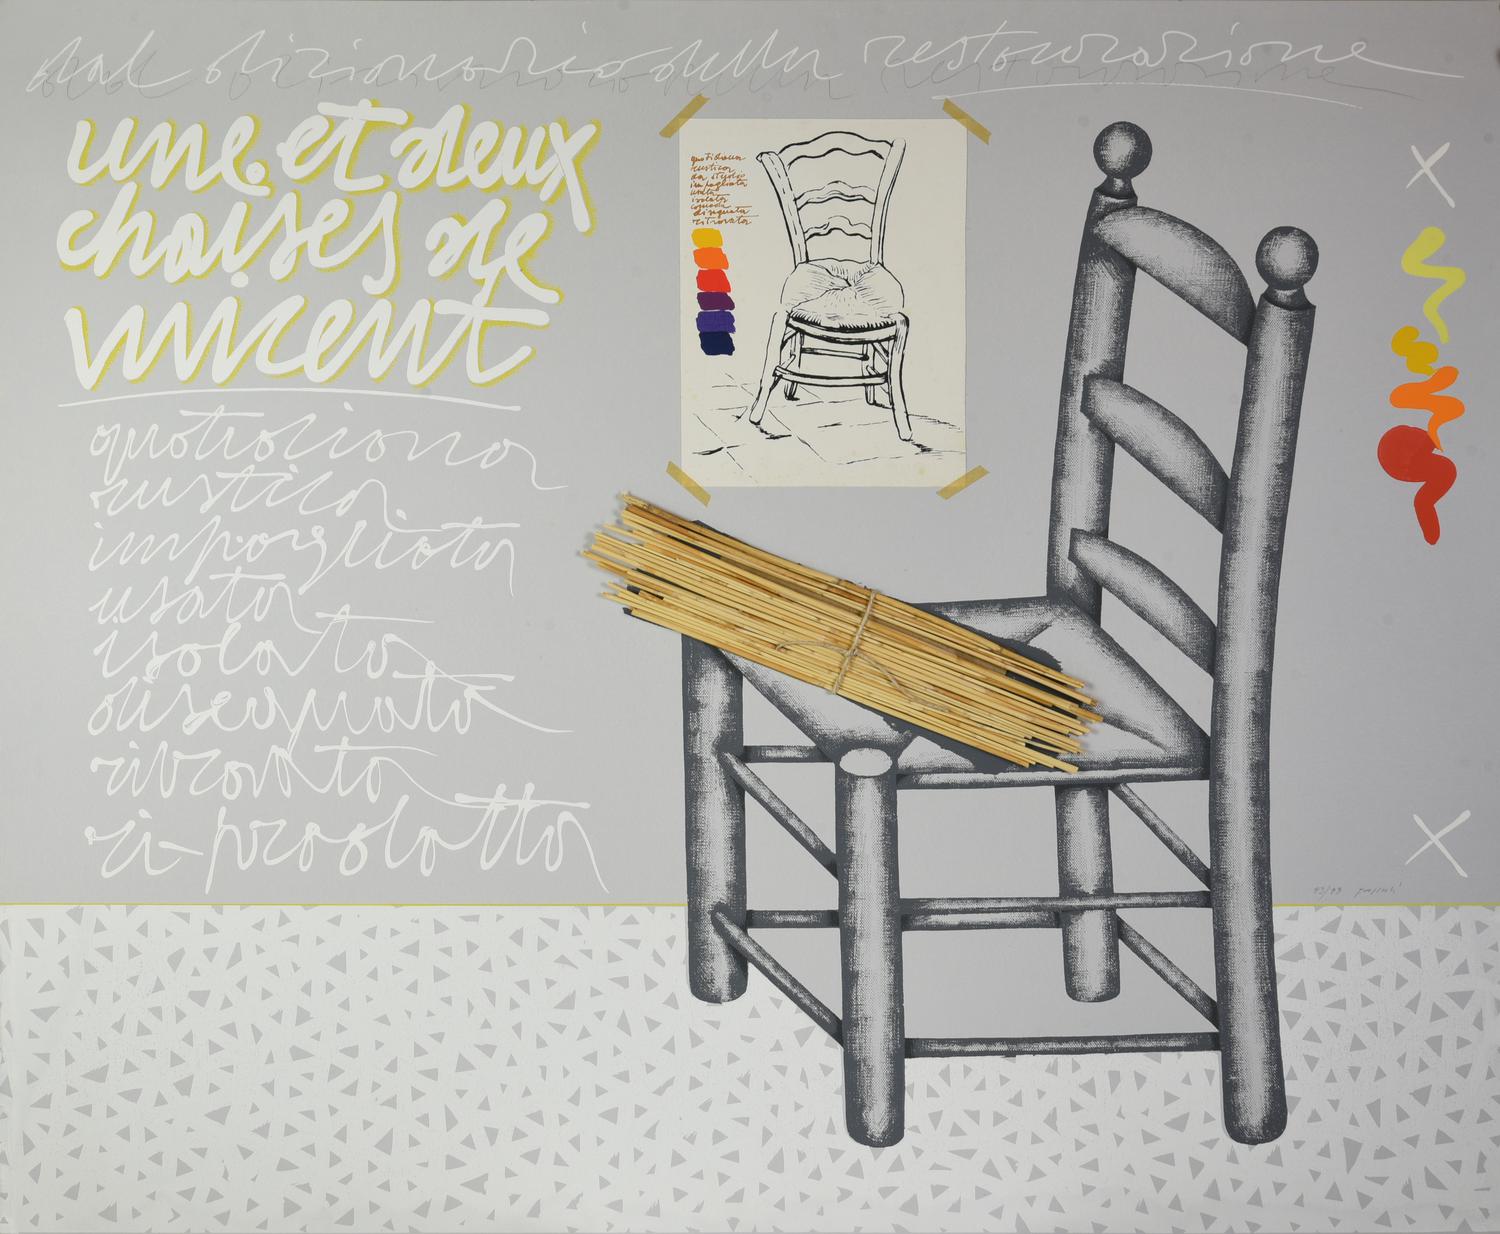 dal dizionario della restaurazione
une et deux
chaises de
vincent
quotidiana
rustica
impagliata
usata
isolata
disegnata
ritrovata
ri-prodotta
quotidiana
rustica
da studio
impagliata
usata
isolata
comoda
disegnata
ritrovata